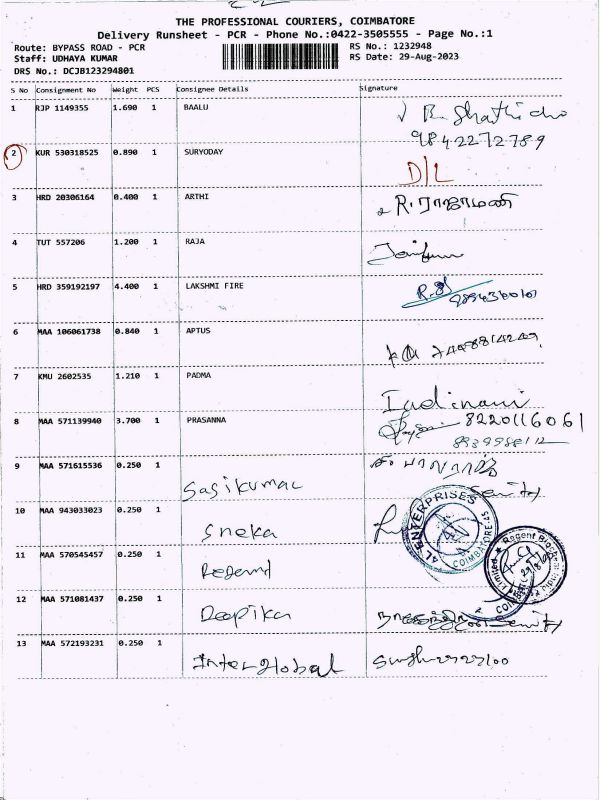 THE PROFESSIONAL COURIERS, COIMBATORE
Delivery Runsheet - PCR - Phone No.:0422-3505555 - Page No.:1
Route: BYPASS ROAD - PCR
Staff: UDHAYA KUMAR
DRS No.: DCJB123294801
RS No.: 1232948
RS Date: 29-Aug-2023
S No Consignment No Weight PCS Consignee Details Signature
1 RJP 1149355 1.690 1 BAALU
9842272789
2 KUR 530318525 0.890 1 SURYODAY D/L
3 HRD 20306164 0.400 1 ARTHI R.
4 TUT 557206 1.200 1 RAJA
5 HRD 359192197 4.400 1 LAKSHMI FIRE
6 MAA 106061738 0.840 1 APTUS
7 KMU 2602535 1.210 1 PADMA
8 MAA 571139940 3.700 1 PRASANNA 8220116061
9 MAA 571615536 0.250 1 Sasikumar
10 MAA 943033023 0.250 1 Sneka
AL ENTERPRISES
COIMBATORE-45
11 MAA 570545457 0.250 1
Regent
Limited
12 MAA 571081437 0.250 1 Deepika
13 MAA 572193231 0.250 1 Inter global